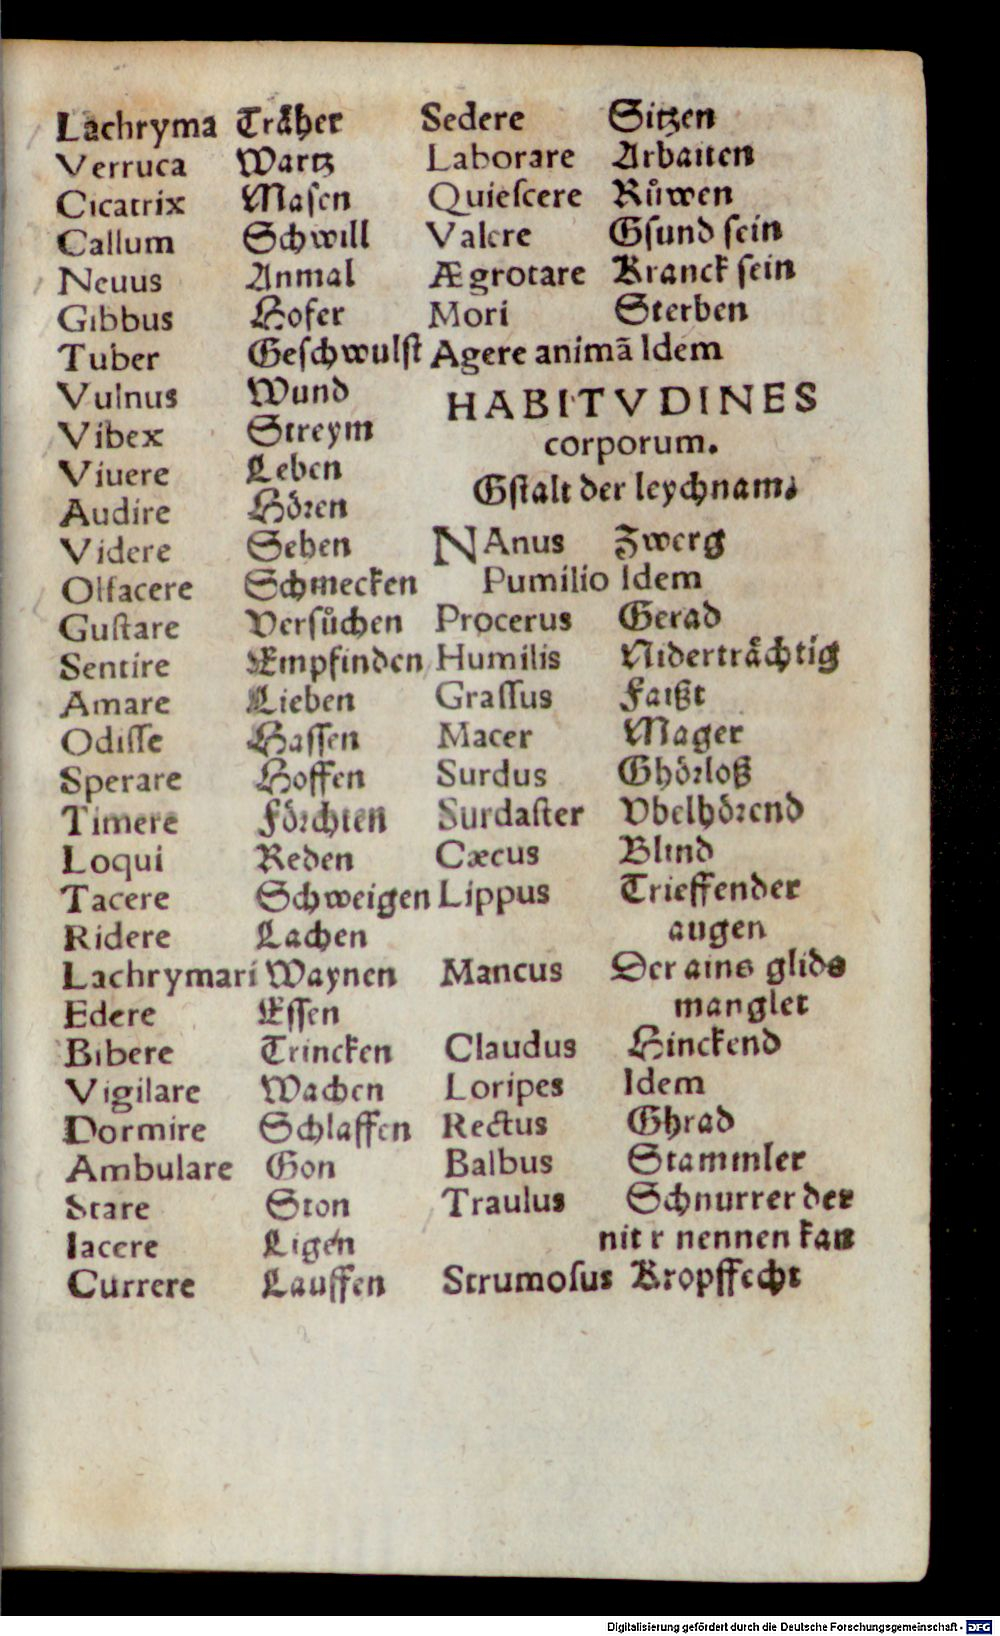 Lachryma Traͤher
Verruca Wartz
Cicatrix Masen
Callum Schwill
Neuus Anmal
Gibbus Hofer
Tuber Geschwulst
Vulnus Wund
Vibex Streym
Viuere Leben
Audire Hoͤꝛen
Videre Sehen
Olfacere Schmecken
Guſtare Verſuͦchen
Sentire Empfinden
Amare Lieben
Odiſſe Haſſen
Sperare Hoffen
Timere Foͤꝛchten
Loqui Reden
Tacere Schweigen
Ridere Lachen
Lachrymari Waynen
Edere Eſſen
Bibere Trincken
Vigilare Wachen
Dormire Schlaffen
Ambulare Gon
Stare Ston
Iacere Ligen
Currere Lauffen
Sedere Sitzen
Laborare Arbaiten
Quieſcere Ruͦwen
Valere Gſund ſein
Ægrotare Kranck ſein
Mori Sterben
Agere animã Idem
HABITVDINES
corporum.
Gſtalt der leychnam.
NAnus Zwerg
Pumilio Idem
Procerus Gerad
Humilis Nidertraͤchtig
Graſſus Faißt
Macer Mager
Surdus Ghoͤꝛloß
Surdaſter Vbelhoͤꝛend
Cæcus Blind
Lippus Trieffender
augen
Mancus Der ains glids
manglet
Claudus Hinckend
Loripes Idem
Rectus Ghrad
Balbus Stammler
Traulus Schnurrer der
nit r nennen kan
Strumoſus Kropffecht
Digitalisierung gefördert durch die Deutsche Forschungsgemeinschaft - DFG